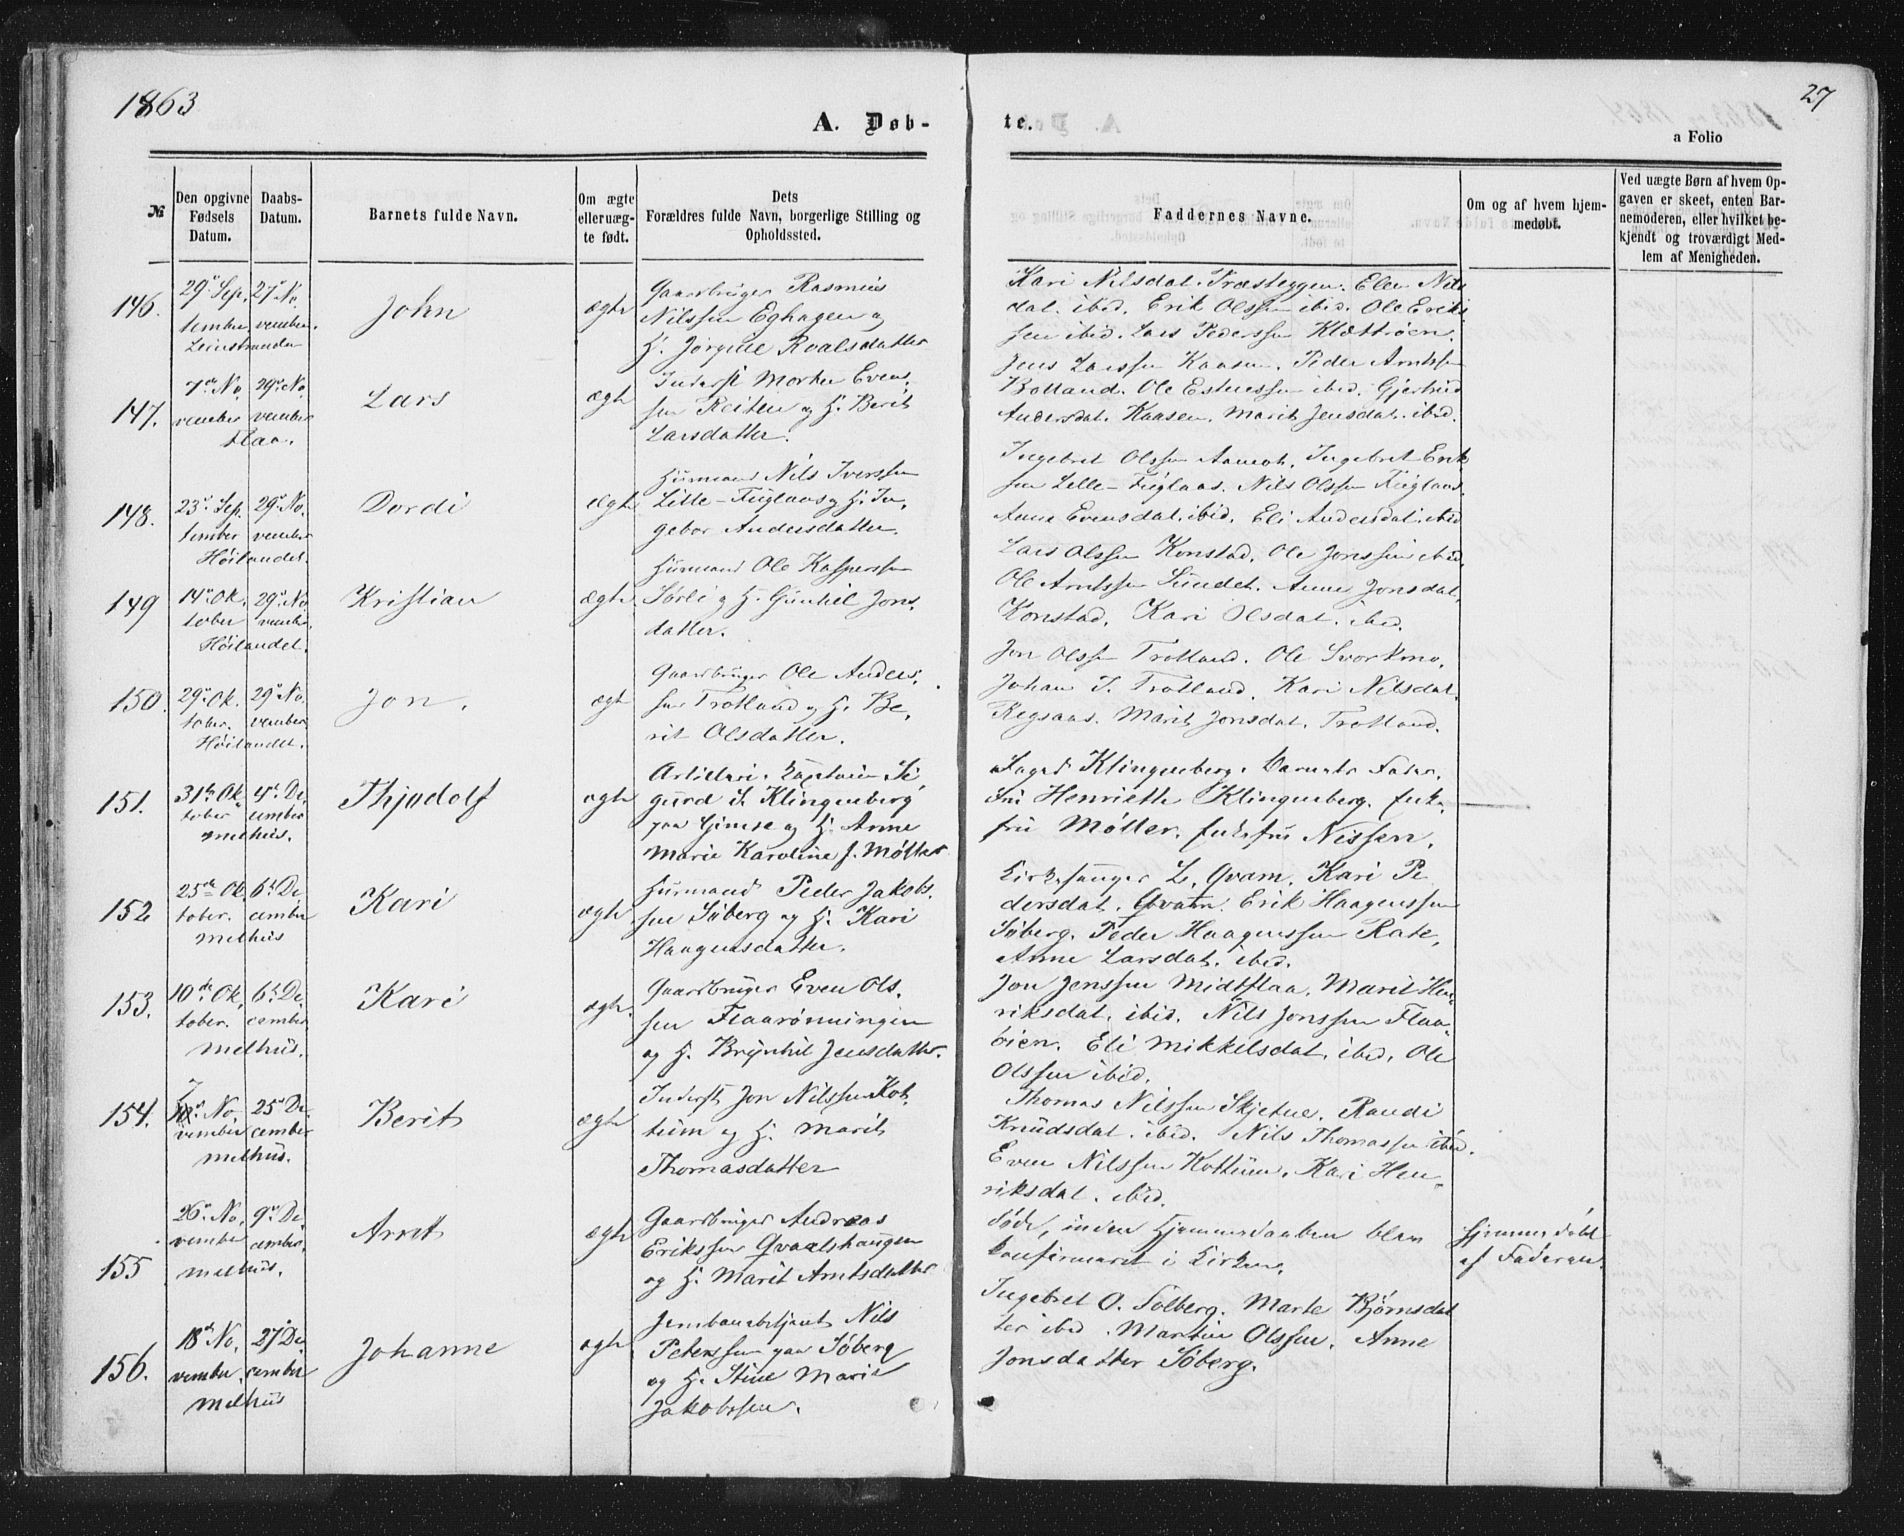 1863
27
A. Døb-
te.
a Folio
№
Den opgivne Fødsels Datum.
Daabs-Datum.
Barnets fulde Navn.
Om ægte eller uægte født.
Dets Forældres fulde Navn, borgerlige Stilling og Opholdssted.
Faddernes Navne.
Om og af hvem hjemmedøbt.
Ved uægte Børn af hvem Opgaven er skeet, enten Barnemoderen, eller hvilket bekjendt og troværdigt Medlem af Menigheden.
146.
29de Sep,
tember
27de No,
vember.
Leinstranden
John
ægte
Gaardbruger Rasmus
Nilssen Eghagen og
H. Jørgine Roalsdatter
Kari Nilsdat. Præsteggen. Elen Nils
dat. ibid. Erik Olssen ibid. Ole Eriks
sen ibid. Lars Pederssen Klættrøen.
147.
7de No,
vember
29de No,
vember
Flaa.
Lars
ægte
Inderst Morten Evens,
sen Reiten og H. Berit
Larsdatter.
Jens Larssen Kaasen. Peder Arntssen
Bolland. Ole Estenssen ibid. Gjertrud
Andersdat. Kaasen. Marit Jensdat. ibid.
148.
23de Sep.
tember
29de No,
vember
Høilandet.
Dordi
ægte
Husmand Nils Iverssen
Lille-Fuglaas og H. In,
gebor Andersdatter.
Ingebret Olssen Aamot. Ingebret Erik
sen Lille-Fuglaas. Nils Olssen Fuglaas.
Anne Evensdat. ibid. Eli Andersdat. ibid
149
14de Ok,
tober
29de No,
vember.
Høilandet.
Kristian
ægte
Husmand Ole Kasperssen
Sørli og H. Gunhil Jons
datter.
Lars Olssen Konstad. Ole Jonssen ibid.
Ole Arntssen Sundet. Anne Jonsdat,
Konstad. Kari Olsdat. ibid.
150.
29de Ok.
tober.
29de No,
vember
Høilandet.
Jon.
ægte
Gaardbruger Ole Anders,
sen Trotland og H. Be,
rit Olsdatter.
Jon Olssen Trotland. Ole Svorkmo,
Johan J. Trotland. Kari Nilsdat.
Regsaas. Marit Jonsdat. Trotland.
151.
31te Ok,
tober
4de De,
cember
Melhus.
Thjodolf
ægte
Artilleri. Kaptein Si
gurd S. Klingenberg
paa Gimse og H. Anne
Marie Karoline f. Møller
Foged Klingenberg. Barnets Fader.
Fru Henriette Klingenberg. Enke,
fru Møller. Enkefru Nissen.
152
25de Ok,
tober.
6te De,
cember
Melhus
Kari
ægte
Husmand Peder Jakobs.
sen Søberg og H. Kari
Haagensdatter.
Kirkesanger L. Qvam. Kari Pe
dersdat. Qvam. Erik Haagenssen
Søberg. Peder Haagenssen Rate,
Anne Larsdat. ibid.
153.
10de Ok,
tober.
6te De,
cember
Melhus.
Kari
ægte.
Gaardbruger Even Ols,
sen Flaarønningen
og H. Brynhil Jensdatter.
Jon Jenssen Midtflaa. Marit Hen,
riksdat. ibid. Nils Jonssen Flaa,
øien. Eli Mikkelsdat. ibid. Ole
Olssen ibid.
154.
7
No,
vember
25de De,
cember
Melhus.
Berit
ægte
Inderst Jon Nilssen Kot
tum og H. Marit
Thomasdatter
Thomas Nilssen Skjetne. Randi
Knudsdat. ibid. Nils Thomassen ibid.
Even Nilssen Kottum. Kari Hen,
riksdat. ibid.
155
26de No,
vember
9de De,
cember.
Melhus.
Arnt
ægte
Gaardbruger Andreas
Erikssen Qvaalshaugen
og H. Marit Arntsdatter
Døde, inden Hjemmedaaben blev
konfirmeret i Kirken.
Hjemmedøbt
af Faderen.
156.
18de No,
vember.
27de De,
cember
Melhus
Johanne
ægte
Jernbanebetjent Nils
Peterssen paa Søberg
og H. Stine Marie
Jakobssen.
Ingebret O. Solberg. Marte Bjørnsdat
ter ibid. Martin Olssen. Anne
Jonsdatter Søberg.